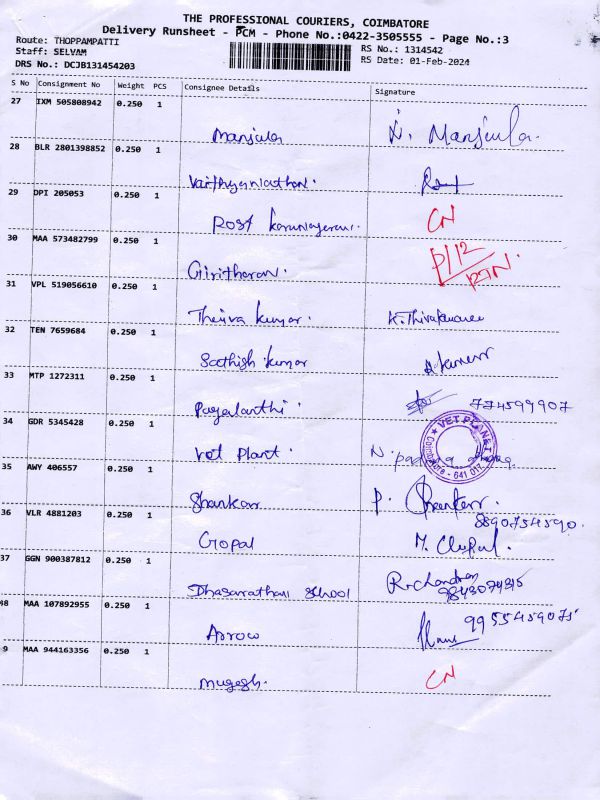 THE PROFESSIONAL COURIERS, COIMBATORE
Delivery Runsheet - PCM - Phone No.:0422-3505555 - Page No.:3
Route: THOPPAMPATTI
RS No.: 1314542
Staff: SELVAM
RS Date: 01-Feb-2024
DRS No.: DCJB131454203
S No Consignment No Weight PCS Consignee Details Signature
27 IXM 505808942 0.250 1
Manjula N. Manjula.
28 BLR 2801398852 0.250 1
29 DPI 205053 0.250 1
Post CN
30 MAA 573482799 0.250 1
Giritharan. D/12
RTN.
31 VPL 519056610 0.250 1
Thiruva kumar.
32 TEN 7659684 0.250 1
Sathish kumar
33 MTP 1272311 1 0.250 1
34 GDR 5345428 0.250 1
Vet Plant.
VET PLANET
Coimbatore - 641 017
35 AWY 406557 0.250 1
Shankar P. Shankar.
36 VLR 4881203 0.250 1
8890754590.
Gopal
37 GGN 900387812 0.250 1
Dhasarathan school R. Chandran
48 MAA 107892955 0.250 1
Arrow
9 MAA 944163356 0.250 1
Mugesh. CN